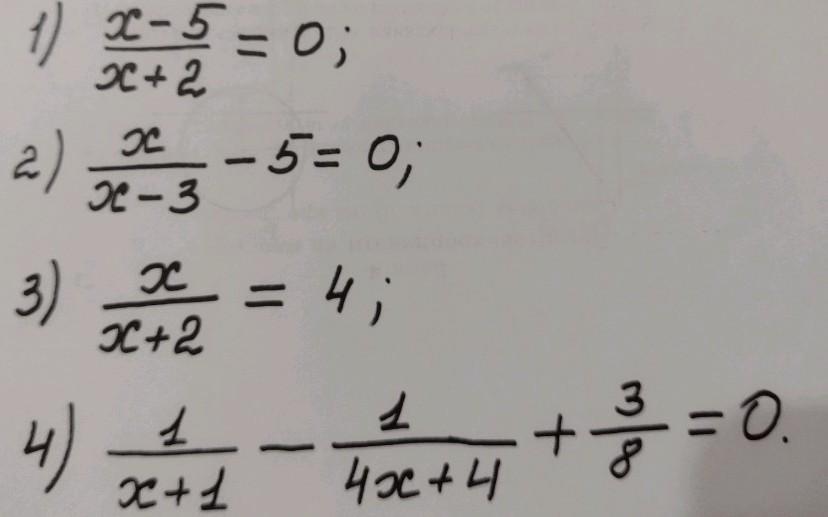 1) (x-5)/(x+2) = 0;
2) x/(x-3) - 5 = 0;
3) x/(x+2) = 4;
4) 1/(x+1) - 1/(4x+4) + 3/8 = 0.